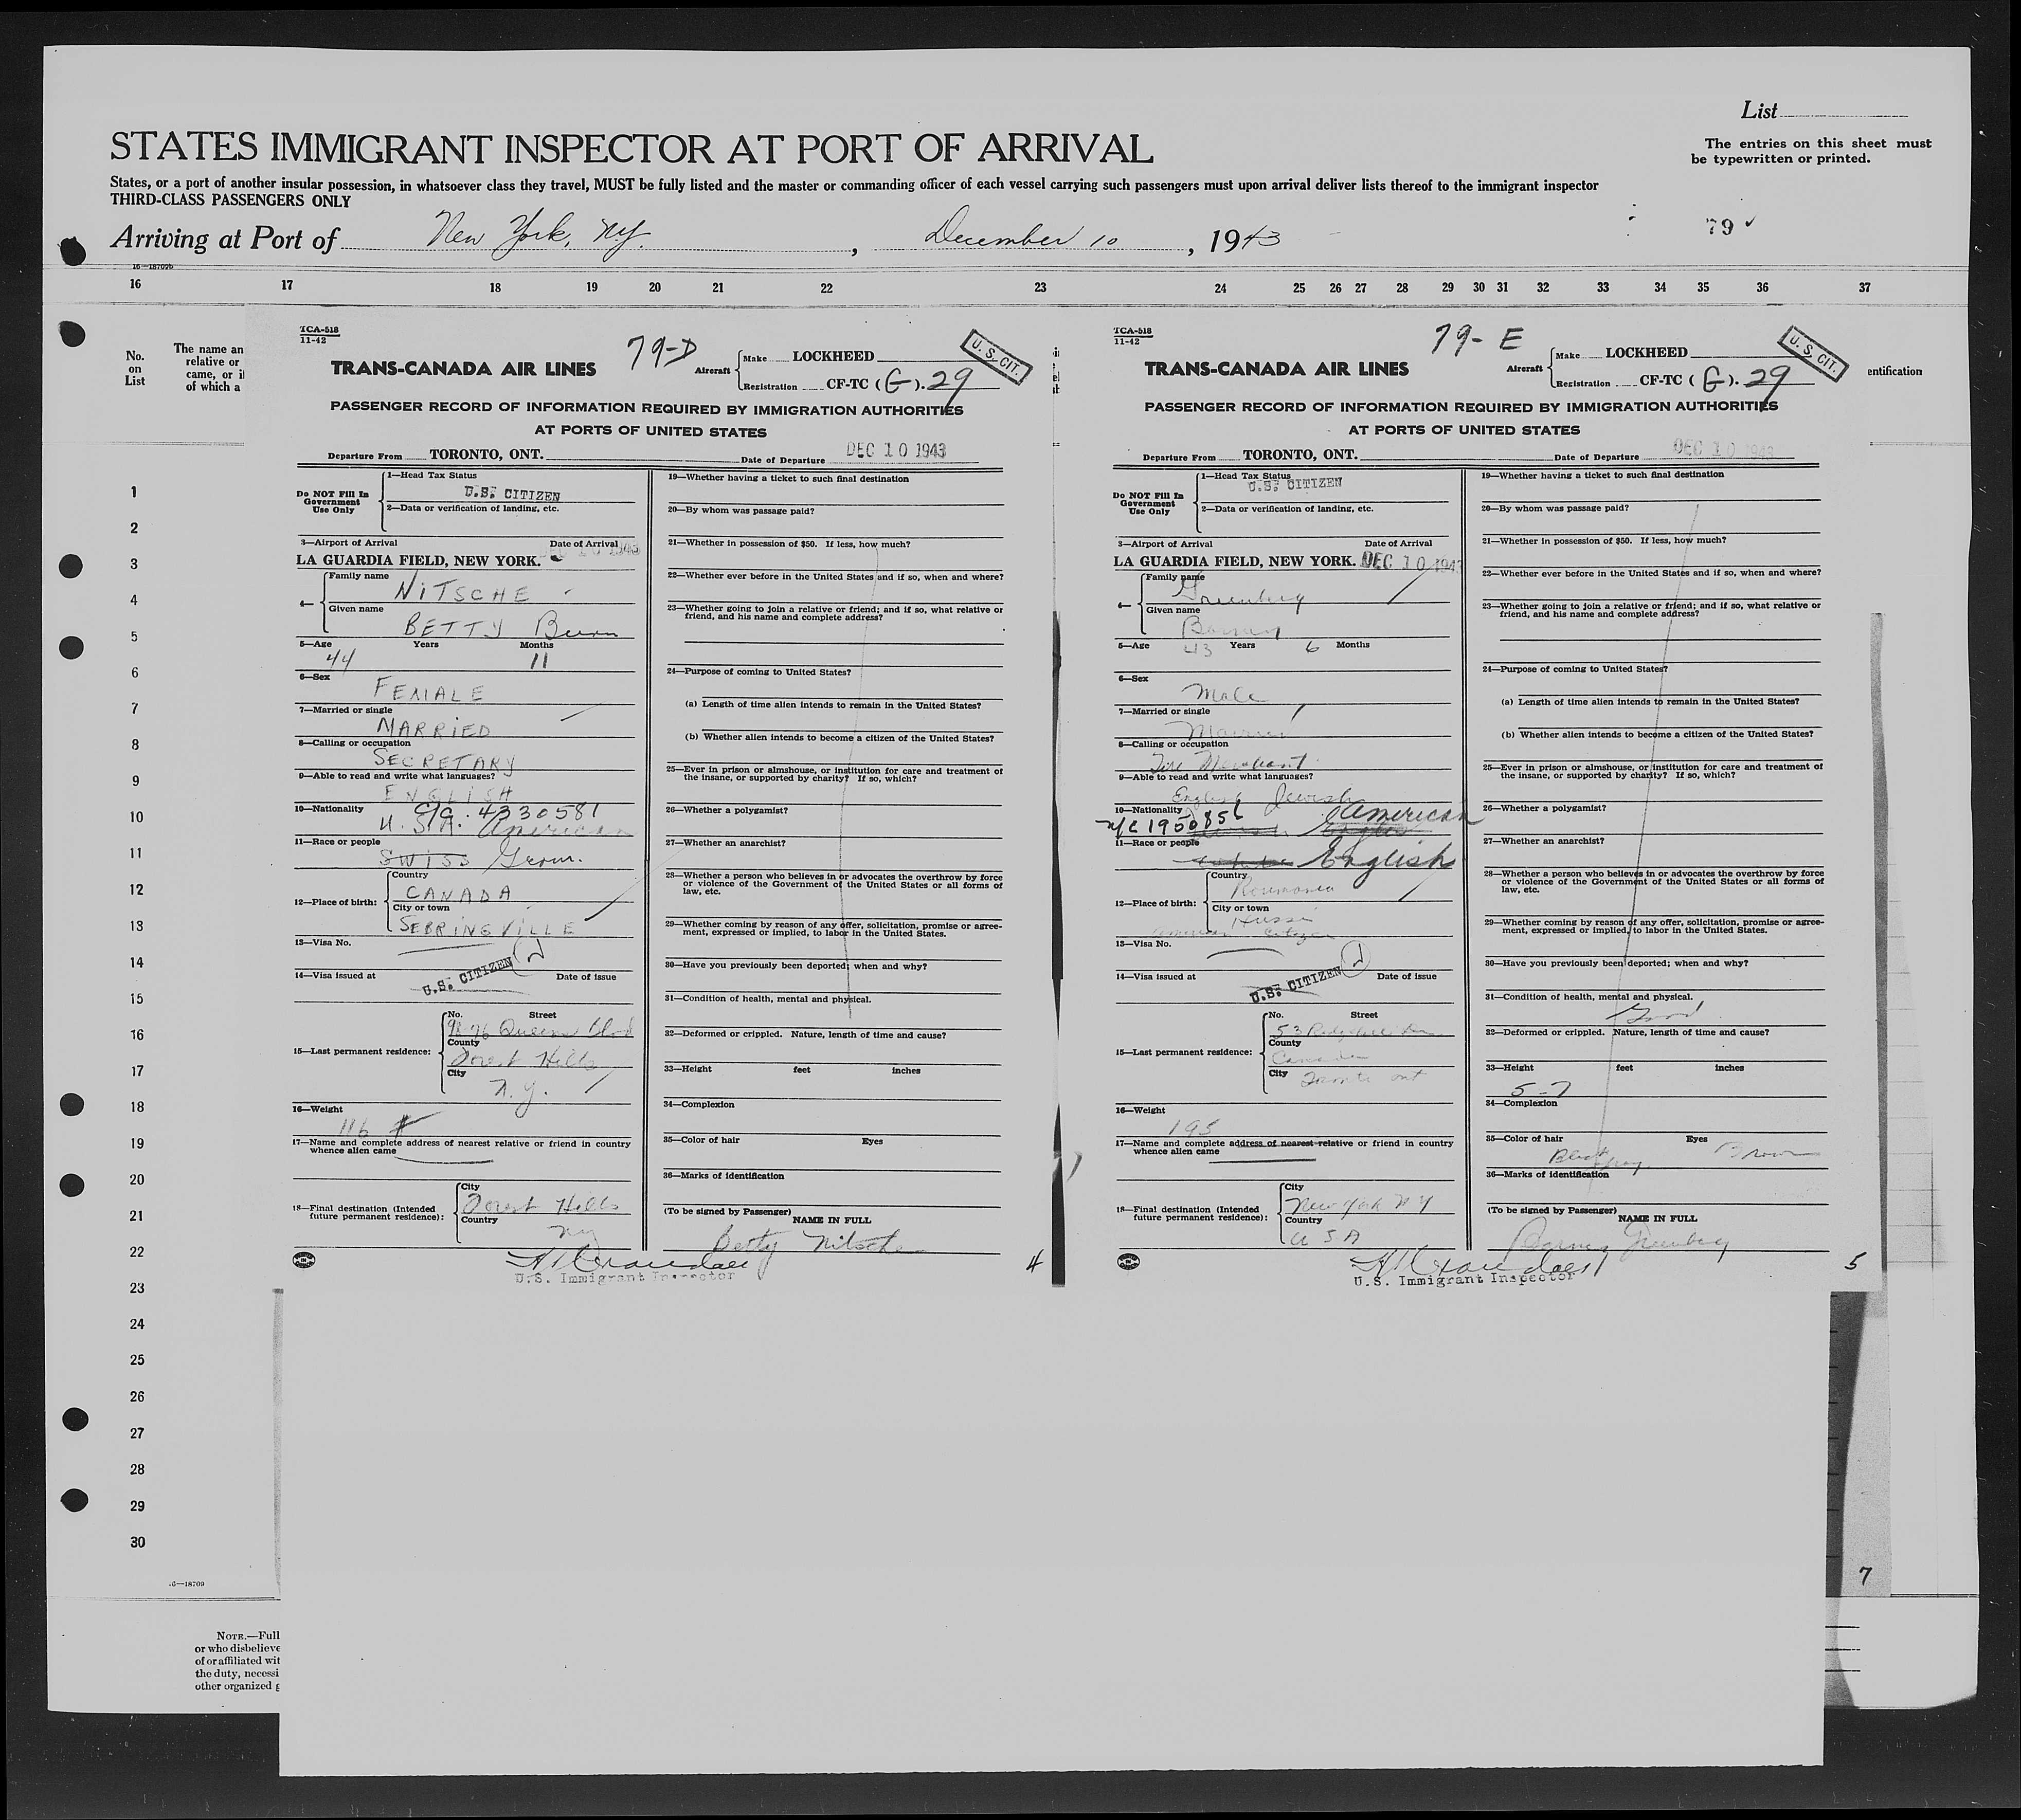 List
STATES IMMIGRANT INSPECTOR AT PORT OF ARRIVAL
The entries on this sheet must
be typewritten or printed.
States, or a port of another insular possession, in whatsoever class they travel, MUST be fully listed and the master or commanding officer of each vessel carrying such passengers must upon arrival deliver lists thereof to the immigrant inspector
THIRD-CLASS PASSENGERS ONLY
Arriving at Port of New York, N.Y., December 10, 1943
79
16—18709b
16 17 18 19 20 21 22 23 24 25 26 27 28 29 30 31 32 33 34 35 36 37
No.
on
List
The name an
relative or
came, or i
of which a
entification
1
2
3
4
5
6
7
8
9
10
11
12
13
14
15
16
17
18
19
20
21
22
23
24
25
26
27
28
29
30
TCA-518
11-42
79-D
U. S. CIT.
TRANS-CANADA AIR LINES
Aircraft
Make LOCKHEED
Registration CF-TC (G). 29
PASSENGER RECORD OF INFORMATION REQUIRED BY IMMIGRATION AUTHORITIES
AT PORTS OF UNITED STATES
Departure From TORONTO, ONT. Date of Departure DEC 10 1943
Do NOT Fill In
Government
Use Only
1—Head Tax Status
U.S. CITIZEN
2—Data or verification of landing, etc.
3—Airport of Arrival Date of Arrival
LA GUARDIA FIELD, NEW YORK. DEC 10 1943
4—
Family name
NITSCHE
Given name
BETTY
5—Age Years Months
44 11
6—Sex
FEMALE
7—Married or single
MARRIED
8—Calling or occupation
SECRETARY
9—Able to read and write what languages?
ENGLISH
10—Nationality
4330581
U.S.A. American
11—Race or people
SWISS Germ.
12—Place of birth:
Country
CANADA
City or town
SEBRINGVILLE
13—Visa No.
14—Visa issued at Date of issue
U.S. CITIZEN
15—Last permanent residence:
No. Street
98-76 Queens Blvd
County
Forest Hills
City
N.Y.
16—Weight
116 #
17—Name and complete address of nearest relative or friend in country
whence alien came
18—Final destination (Intended
future permanent residence):
City
Forest Hills
Country
NY
U.S. Immigrant Inspector
19—Whether having a ticket to such final destination
20—By whom was passage paid?
21—Whether in possession of $50. If less, how much?
22—Whether ever before in the United States and if so, when and where?
23—Whether going to join a relative or friend; and if so, what relative or
friend, and his name and complete address?
24—Purpose of coming to United States?
(a) Length of time alien intends to remain in the United States?
(b) Whether alien intends to become a citizen of the United States?
25—Ever in prison or almshouse, or institution for care and treatment of
the insane, or supported by charity? If so, which?
26—Whether a polygamist?
27—Whether an anarchist?
28—Whether a person who believes in or advocates the overthrow by force
or violence of the Government of the United States or all forms of
law, etc.
29—Whether coming by reason of any offer, solicitation, promise or agree-
ment, expressed or implied, to labor in the United States.
30—Have you previously been deported; when and why?
31—Condition of health, mental and physical.
32—Deformed or crippled. Nature, length of time and cause?
33—Height feet inches
34—Complexion
35—Color of hair Eyes
36—Marks of identification
(To be signed by Passenger)
NAME IN FULL
Betty Nitsche
4
TCA-518
11-42
79-E
U. S. CIT.
TRANS-CANADA AIR LINES
Aircraft
Make LOCKHEED
Registration CF-TC (G). 29
PASSENGER RECORD OF INFORMATION REQUIRED BY IMMIGRATION AUTHORITIES
AT PORTS OF UNITED STATES
Departure From TORONTO, ONT. Date of Departure DEC 10 1943
Do NOT Fill In
Government
Use Only
1—Head Tax Status
U.S. CITIZEN
2—Data or verification of landing, etc.
3—Airport of Arrival Date of Arrival
LA GUARDIA FIELD, NEW YORK. DEC 10 1943
4—
Family name
Greenberg
Given name
Barney
5—Age Years Months
43 6
6—Sex
Male
7—Married or single
Married
8—Calling or occupation
Tire Merchant
9—Able to read and write what languages?
English Jewish
10—Nationality
American
1950856
11—Race or people
English
12—Place of birth:
Country
Roumania
City or town
Hussi
American Citizen
13—Visa No.
14—Visa issued at Date of issue
U.S. CITIZEN
15—Last permanent residence:
No. Street
53
County
Canada
City
Toronto Ont
16—Weight
195
17—Name and complete address of nearest relative or friend in country
whence alien came
18—Final destination (Intended
future permanent residence):
City
New York N Y
Country
U S A
U.S. Immigrant Inspector
19—Whether having a ticket to such final destination
20—By whom was passage paid?
21—Whether in possession of $50. If less, how much?
22—Whether ever before in the United States and if so, when and where?
23—Whether going to join a relative or friend; and if so, what relative or
friend, and his name and complete address?
24—Purpose of coming to United States?
(a) Length of time alien intends to remain in the United States?
(b) Whether alien intends to become a citizen of the United States?
25—Ever in prison or almshouse, or institution for care and treatment of
the insane, or supported by charity? If so, which?
26—Whether a polygamist?
27—Whether an anarchist?
28—Whether a person who believes in or advocates the overthrow by force
or violence of the Government of the United States or all forms of
law, etc.
29—Whether coming by reason of any offer, solicitation, promise or agree-
ment, expressed or implied, to labor in the United States.
30—Have you previously been deported; when and why?
31—Condition of health, mental and physical.
Good
32—Deformed or crippled. Nature, length of time and cause?
33—Height feet inches
5-7
34—Complexion
35—Color of hair Eyes
Black Gray Brown
36—Marks of identification
(To be signed by Passenger)
NAME IN FULL
Barney Greenberg
5
7
16—18709
NOTE.—Full
or who disbelieve
of or affiliated wit
the duty, necessi
other organized g